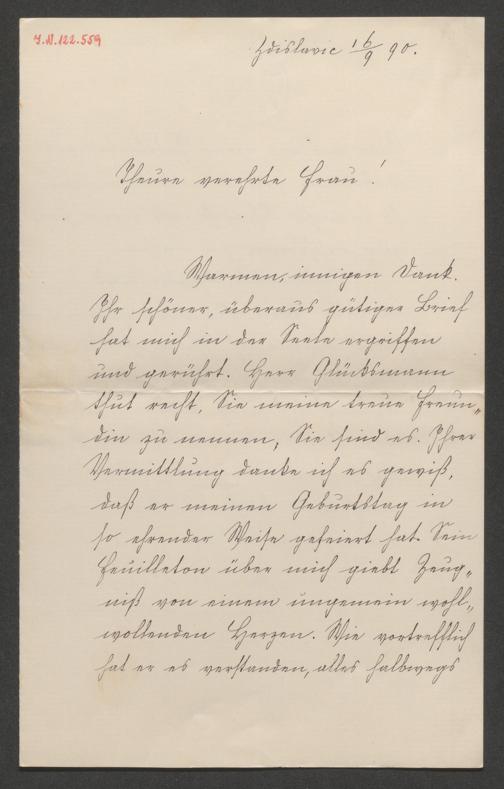 J.N.122.559
Zdislavic 16/9 90.
Theure verehrte Frau!
Warmen, innigen Dank.
Ihr schöner, überaus gütiger Brief
hat mich in der Seele ergriffen
und gerührt. Herr Glücksmann
thut recht, Sie meine treue Freun„
din zu nennen, Sie sind es. Ihrer
Vermittlung danke ich es gewiß,
daß er meinen Geburtstag in
so ehrender Weise gefeiert hat. Sein
Feuilleton über mich giebt Zeug„
niß von einem ungemein wohl„
wollenden Herzen. Wie vortrefflich
hat er es verstanden, alles halbwegs